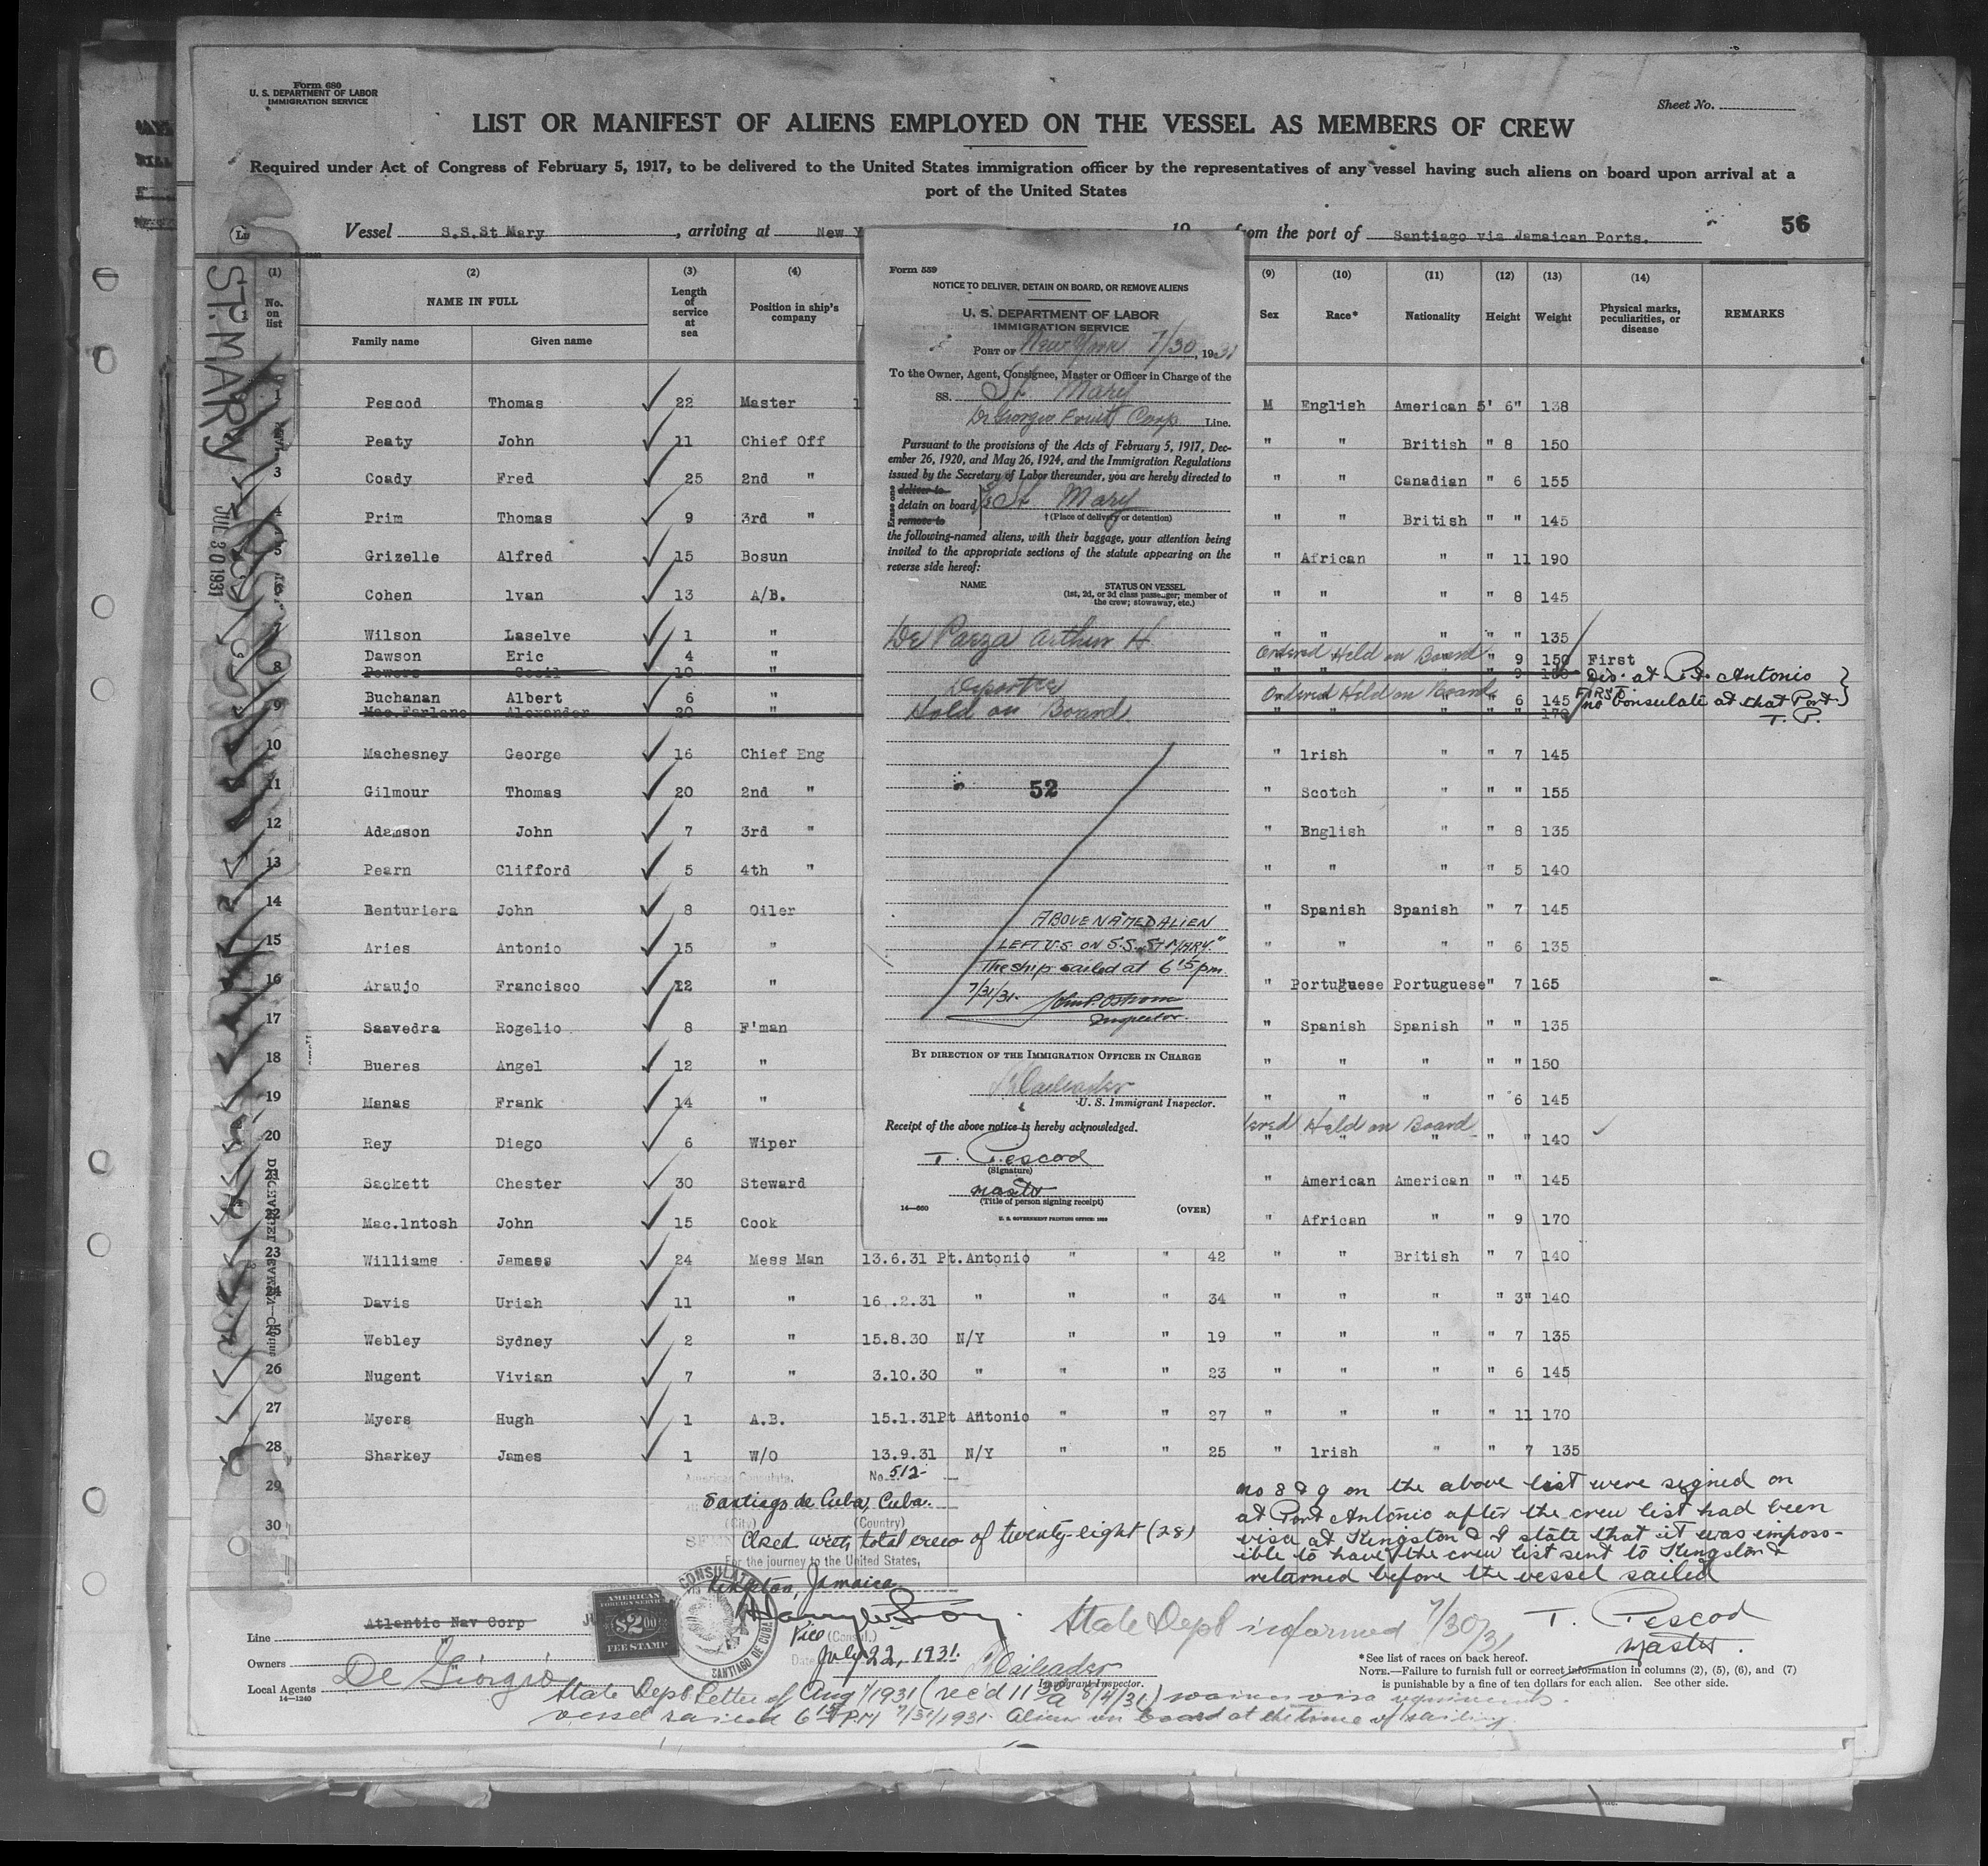 Form 680
U. S. DEPARTMENT OF LABOR
IMMIGRATION SERVICE
Sheet No.
LIST OR MANIFEST OF ALIENS EMPLOYED ON THE VESSEL AS MEMBERS OF CREW
Required under Act of Congress of February 5, 1917, to be delivered to the United States immigration officer by the representatives of any vessel having such aliens on board upon arrival at a
port of the United States
Vessel S.S.St Mary, arriving at New Y 19 from the port of Santiago via Jamaican Ports. 56
ST. MARY
JUL 30 1931
(1) (2) (3) (4) (9) (10) (11) (12) (13) (14)
No. on list NAME IN FULL Length of service at sea Position in ship's company Sex Race* Nationality Height Weight Physical marks, peculiarities, or disease REMARKS
Family name Given name
1 Pescod Thomas 22 Master M English American 5' 6" 138
Peaty John 11 Chief Off " " British " 8 150
3 Coady Fred 25 2nd " " " Canadian " 6 155
4 Prim Thomas 9 3rd " " " British " " 145
5 Grizelle Alfred 15 Bosun " African " " 11 190
Cohen lvan 13 A/B. " " " " 8 145
7 Wilson Laselve 1 " " " " " " 135
Dawson Eric 4 " Ordered Held on Board " 9 150 First
8 Powers Cecil 10 " " " " " 9 150 Dis. at Pt. Antonio
Buchanan Albert 6 " Ordered Held on Board " 6 145 FIRST
9 Mac.Farlane Alexander 20 " " " " " " 170 no Consulate at that Port
T. P.
10 Machesney George 16 Chief Eng " lrish " " 7 145
11 Gilmour Thomas 20 2nd " " Scotch " " " 155
12 Adamson John 7 3rd " " English " " 8 135
13 Pearn Clifford 5 4th " " " " " 5 140
14 Benturiera John 8 Oiler " Spanish Spanish " 7 145
15 Aries Antonio 15 " " " " " 6 135
16 Araujo Francisco 12 " " Portuguese Portuguese " 7 165
17 Saavedra Rogelio 8 F'man " Spanish Spanish " " 135
18 Bueres Angel 12 " " " " " " 150
19 Manas Frank 14 " " " " " 6 145
ered Held on Board
20 Rey Diego 6 Wiper " " " " " 140
21 Sackett Chester 30 Steward " American American " " 145
22 Mac.lntosh John 15 Cook " African " " 9 170
23 Williams Jamaes 24 Mess Man 13.6.31 Pt.Antonio " " 42 " " British " 7 140
24 Davis Uriah 11 " 16 .2.31 " " " 34 " " " " 3" 140
25 Webley Sydney 2 " 15.8.30 N/Y " " 19 " " " " 7 135
26 Nugent Vivian 7 " 3.10.30 " " " 23 " " " " 6 145
27 Myers Hugh 1 A.B. 15.1.31 Pt Antonio " " 27 " " " " 11 170
28 Sharkey James 1 W/O 13.9.31 N/Y " " 25 " lrish " " 7 135
29
30
Form 559
NOTICE TO DELIVER, DETAIN ON BOARD, OR REMOVE ALIENS
U. S. DEPARTMENT OF LABOR
IMMIGRATION SERVICE
PORT OF New York 7/30, 1931
To the Owner, Agent, Consignee, Master or Officer in Charge of the
SS. St Mary
Di Giorgio Fruit Corp Line.
Pursuant to the provisions of the Acts of February 5, 1917, Dec-
ember 26, 1920, and May 26, 1924, and the Immigration Regulations
issued by the Secretary of Labor thereunder, you are hereby directed to
Erase one
deliver to
detain on board SS St Mary
remove to
† (Place of delivery or detention)
the following-named aliens, with their baggage, your attention being
invited to the appropriate sections of the statute appearing on the
reverse side hereof:
NAME STATUS ON VESSEL
(1st, 2d, or 3d class passenger; member of
the crew; stowaway, etc.)
De Paeza Arthur H.
Deportee
Hold on Board
52
ABOVE NAMED ALIEN
LEFT U.S. ON S.S. "ST MARY."
The ship sailed at 6 15 pm
7/31/31. John P. Ostrom
Inspector.
BY DIRECTION OF THE IMMIGRATION OFFICER IN CHARGE
U. S. Immigrant Inspector.
Receipt of the above notice is hereby acknowledged.
T. Pescod
(Signature)
Master
(Title of person signing receipt)
14—660 (OVER)
U. S. GOVERNMENT PRINTING OFFICE: 1930
American Consulate. No. 512
Santiago de Cuba, Cuba.
(City) (Country)
Closed with total crew of twenty-eight (28)
For the journey to the United States,
via Kingston, Jamaica
Vice (Consul.)
Date July 22, 1931.
AMERICAN
FOREIGN SERVICE
$2.00
FEE STAMP
CONSULATE
SANTIAGO DE CUBA
no 8 & 9 on the above list were signed on
at Port Antonio after the crew list had been
visa at Kingston & I state that it was imposs-
ible to have the crew list sent to Kingston &
returned before the vessel sailed
T. Pescod
Master.
State Dept informed 7/30/31
Immigrant Inspector.
Line Atlantic Nav Corp
Owners "
Local Agents De Giorgio
14—1240
*See list of races on back hereof.
NOTE.—Failure to furnish full or correct information in columns (2), (5), (6), and (7)
is punishable by a fine of ten dollars for each alien. See other side.
State Dept Letter of Aug 1/1931 (rec'd 11 30 a 8/4/31) waives visa requirements.
vessel sailed 6 15 P.M 7/31/1931. Alien on board at the time of sailing.